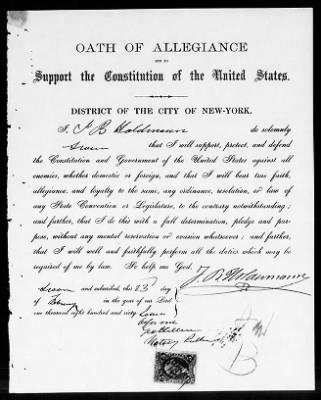 OATH OF ALLEGIANCE
AND TO
Support the Constitution of the United States.
DISTRICT OF THE CITY OF NEW-YORK.
I, J B Holdmann do solemnly
swear that I will support, protect, and defend
the Constitution and Government of the United States against all
enemies, whether domestic or foreign, and that I will bear true faith,
allegiance, and loyalty to the same, any ordinance, resolution, or law of
any State Convention or Legislature, to the contrary notwithstanding;
and further, that I do this with a full determination, pledge and pur-
pose, without any mental reservation or evasion whatsoever; and further,
that I will well and faithfully perform all the duties which may be
required of me by law. So help me God.
Sworn and subscribed, this 23 day
of in the year of our Lord
one thousand eight hundred and sixty
before me
Notary Public